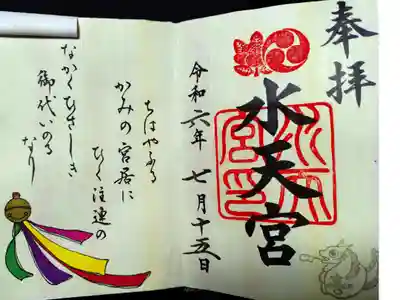 奉拝
水天宮
令和六年 七月十五日
ちはやふる
かみの宮居に
ひく注連の
なかくひさしき
御代いのる
なり